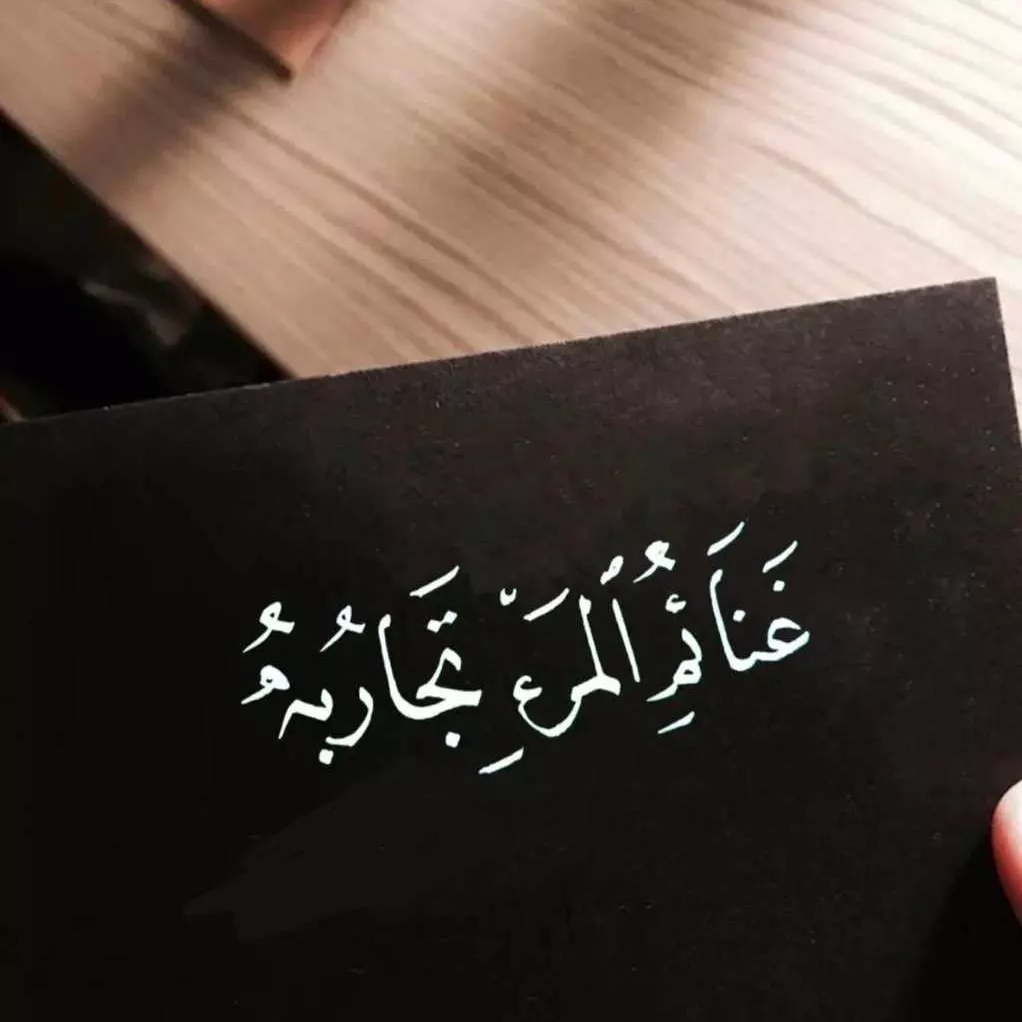 غَنَائِمُ ٱلْمَرْءِ تَجَارِبُهُ